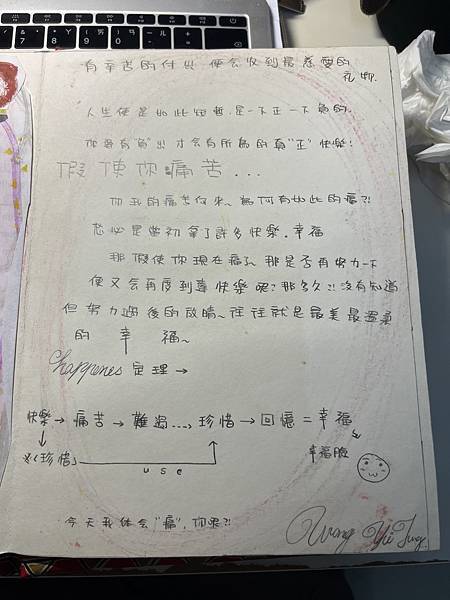 有辛苦的付出 便会收到最慈愛的
礼物.
人生便是如此短暫.是一下正一下負的.
你要有"負"出 才会有所為的真"正"快樂!
假使你痛苦...
你我的痛苦何來~為何有如此的痛?!
想必是當初拿了許多快樂.幸福
那假使你現在痛了~那是否再努力一下
便又会再度到達快樂呢?!那多久?!沒有知道
但努力過後的放晴~往往就是最美最溫柔
的 幸 福~
happenes 定理→
快樂→痛苦→難過...→珍惜→回憶=幸福
※(珍惜)
use
幸福臉
今天我体会"痛",你呢?!
Wang Yu Jung.